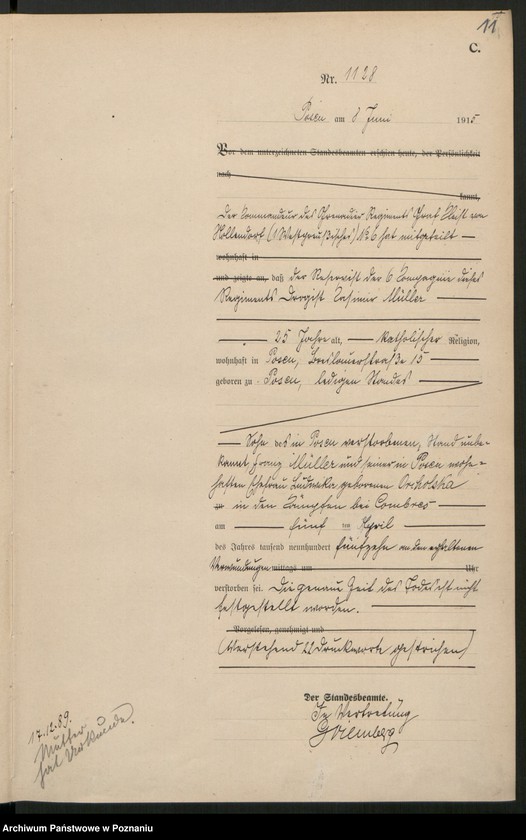 11
C.
Nr. 1128
Posen am 8 Juni 1915
Vor dem unterzeichneten Standesbeamten erschien heute, der Persönlichkeit
nach
kannt,
Der Kommandeur des Grenadier Regiments Graf Kleist von
Nollendorf (1 Westpreußisches) No 6 hat mitgeteilt
wohnhaft in
und zeigte an, daß der Reservist der 6 Kompagnie dieses
Regiments Drogist Kasimir Müller
25 Jahre alt, katholischer Religion,
wohnhaft in Posen, Breslauerstraße 15
geboren zu Posen, ledigen Standes
Sohn des in Posen verstorbenen, Stand unbe-
kannt, Franz Müller und seiner in Posen wohn-
haften Ehefrau Ludwika geborenen
in den Kämpfen bei Combres
am fünf ten April
des Jahres tausend neunhundert fünfzehn an den erhaltenen
Verwundungen mittags um Uhr
verstorben sei. Die genaue Zeit des Todes ist nicht
festgestellt worden.
Vorgelesen, genehmigt und
(Vorstehend 22 Druckworte gestrichen)
Der Standesbeamte.
In Vertretung
17.12.89.
Mutter
hat Urkunde.
Archiwum Państwowe w Poznaniu